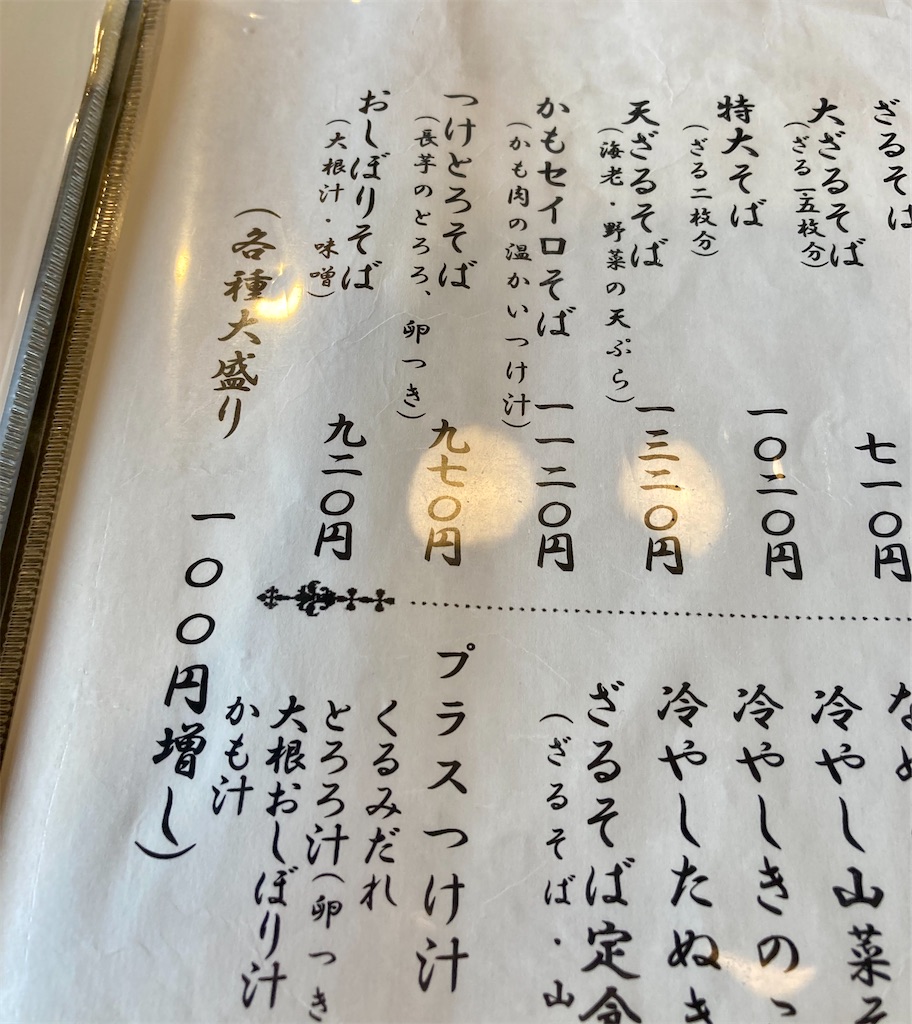 ざるそば
大ざるそば
(ざる一・五枚分)
七一〇円
特大そば
(ざる二枚分)
一〇二〇円
天ざるそば
(海老・野菜の天ぷら)
一三二〇円
かもセイロそば
(かも肉の温かいつけ汁)
一一二〇円
つけとろそば
(長芋のとろろ、卵つき)
九七〇円
おしぼりそば
(大根汁・味噌)
九二〇円
(各種大盛り 一〇〇円増し)
なめ
冷やし山菜そ
冷やしきの
冷やしたぬき
ざるそば定食
(ざるそば・山
プラスつけ汁
くるみだれ
とろろ汁(卵つき
大根おしぼり汁
かも汁